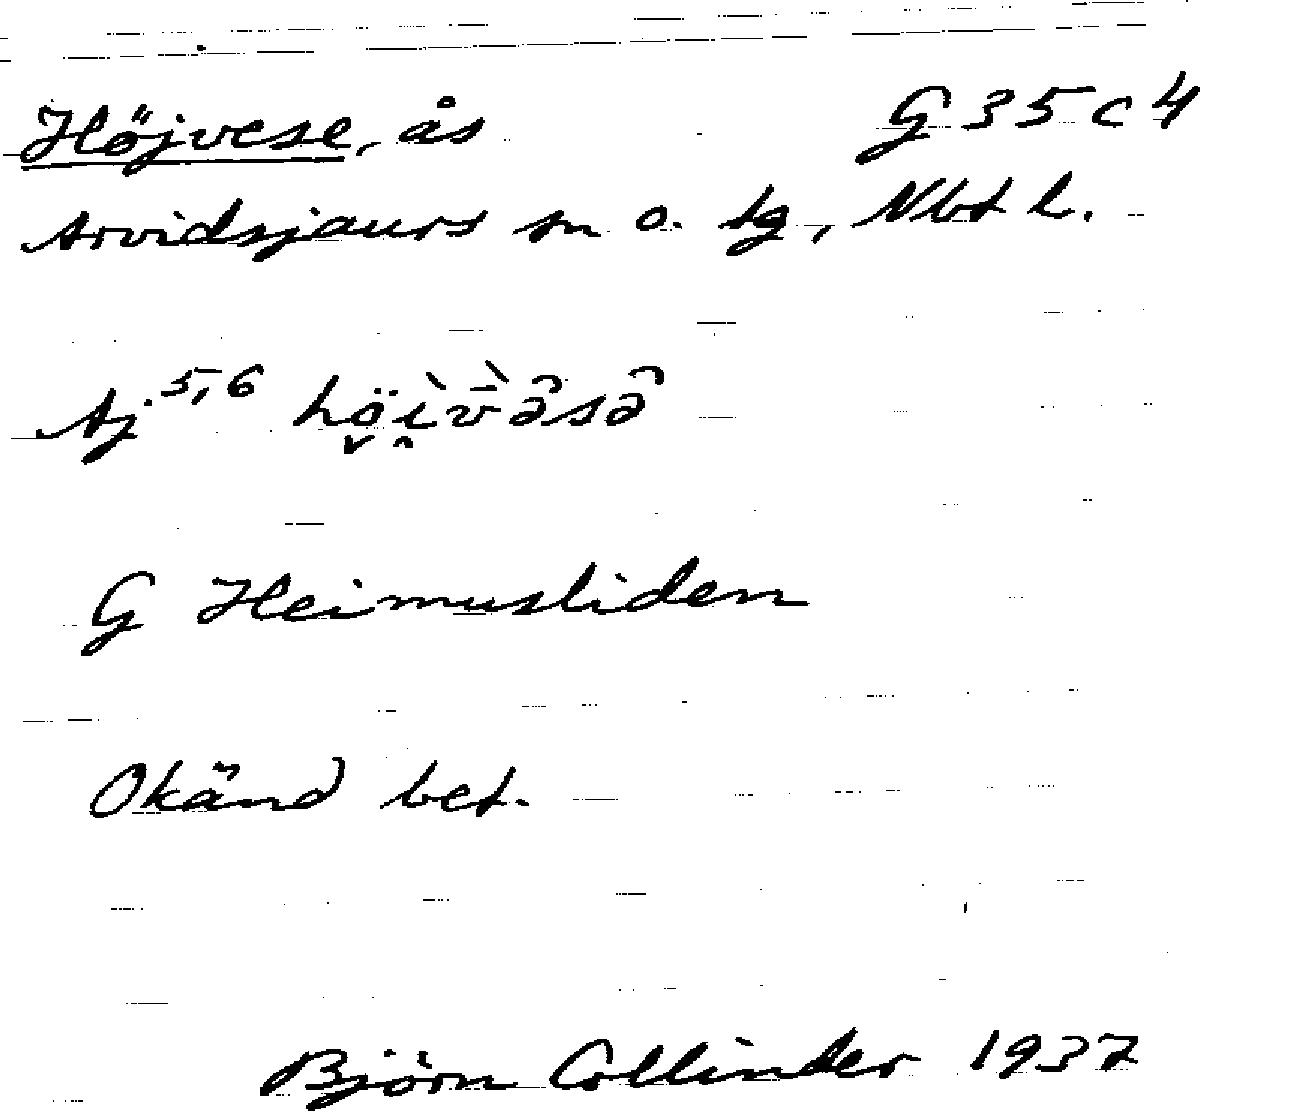 Höjvese, ås G 35 c 4
Arvidsjaurs sn o. tg, Nbt l.
Aj. 5,6
G Heimusliden
Okänd bet.
Björn Collinder 1937